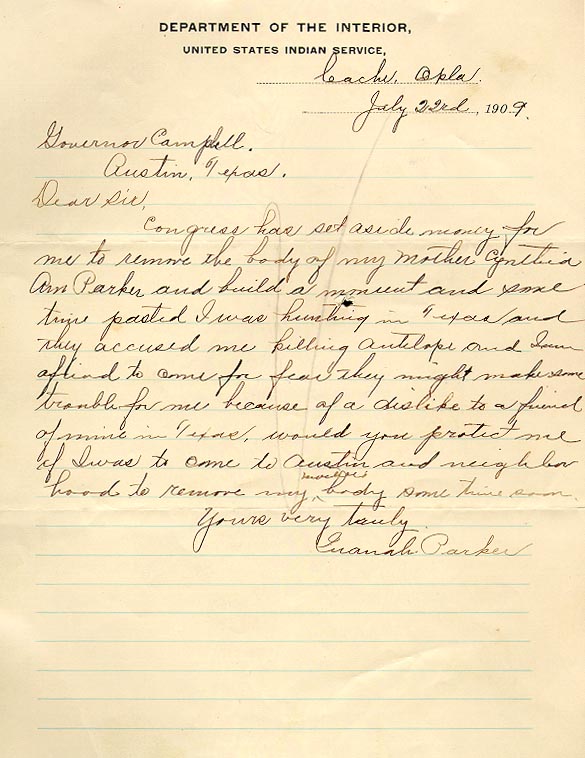 DEPARTMENT OF THE INTERIOR,
UNITED STATES INDIAN SERVICE,
Cache, Okla.
July 22rd, 1909.
Governor Campbell.
Austin, Texas.
Dear Sir,
Congress has set aside money for
me to remove the body of my Mother Cynthia
Ann Parker and build a monument and some
time pasted I was hunting in Texas and
they accused me killing antelope and I am
afraid to come for fear they might make some
trouble for me because of a dislike to a friend
of mine in Texas, would you protect me
if I was to come to Austin and neighbor
hood to remove my mother's body some time soon.
Yours very truly
Quanah Parker